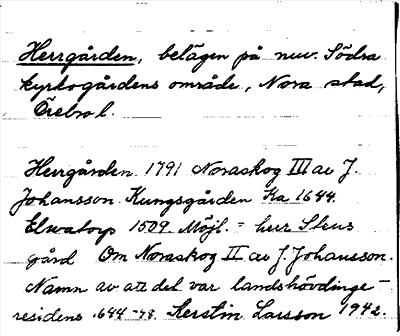 Herrgården, belägen på nuv. Södra
kyrkogårdens område, Nora stad,
Örebro l.
Herrgården 1791 Noraskog III av J.
Johansson Kungsgården Ka 1644.
Elvatorp 1509. Möjl. = herr Stens
gård Om Noraskog II av J. Johansson.
Namn av att det var landshövdinge-
residens 1644-78. Kerstin Larsson 1942.